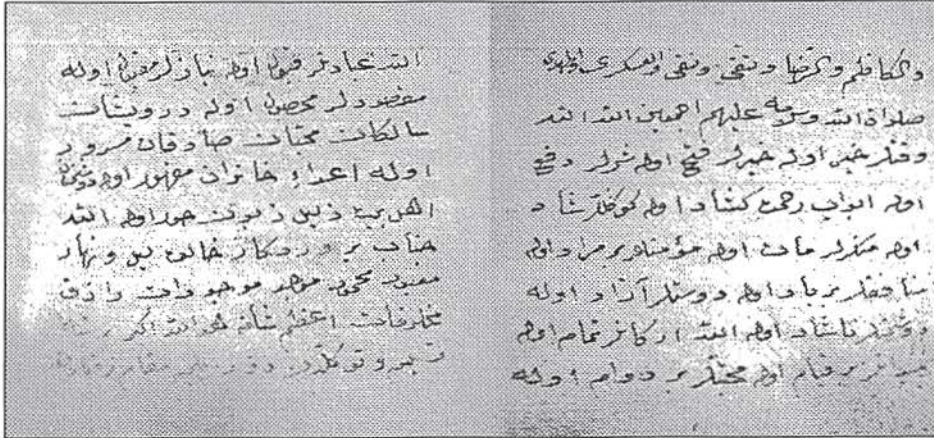 والكاظم والرضا وتقى ونقى والعسكرى والمهدى
صلواة الله وسلامه عليهم اجمعين الله الله
وقتلر خير اوله خيرلر فتح اوله شرلر دفع
اوله ابواب رحمت كشاد اوله كوكللر شاد
اوله منكرلر مات اوله مؤمنلر بر مراد اوله
منافقلر برباد اوله دوستلر آزاد اوله
ناشاد اوله الله اركانز تمام اوله
بر قيام اوله محبتلر بر دوام اوله
الله عبادتلر قبول اوله نيازلر مقبول اوله
مقصودلر محصول اوله درويشان
سالكان محبان صادقان مسرور
اوله اعداء خاندان مقهور اوله دشمنان
اهل بيت ذليل زبون خور اوله الله
جناب پروردكار خالق ليل ونهار
معبود محمود موجد موجودات رازق
مخلوقات اعظم شأنه الله اكبر